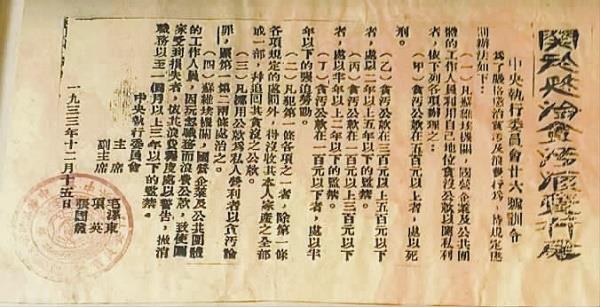 關於懲治貪污浪費行為
中央執行委員會廿六號訓令
為了嚴格懲治貪污及浪費行為，特規定懲
罰辦法如下：
（一）凡蘇維埃機關，國營企業及公共團
體的工作人員利用自己地位貪沒公款以圖私利
者，依下列各項辦理之：
（甲）貪污公款在五百元以上者，處以死
刑。
（乙）貪污公款在三百元以上五百元以下
者，處以二年以上五年以下的監禁。
（丙）貪污公款在一百元以上三百元以下
者，處以半年以上二年以下的監禁。
（丁）貪污公款在一百元以下者，處以半
年以下的強迫勞動。
（二）凡犯第一條各項之一者，除第一條
各項規定的處罰外，得沒收其本人家產之全部
或一部，并追回其貪沒之公款。
（三）凡挪用公款為私人營利者以貪污論
罪，照第一第二兩條處治之。
（四）蘇維埃機關，國營企業及公共團體
的工作人員，因玩忽職務而浪費公款，致使國
家受到損失者，依其浪費程度處以警告，撤消
職務以至一個月以上三年以下的監禁。
中央執行委員會
主席 毛澤東
副主席 項英
張國燾
一九三三年十二月十五日